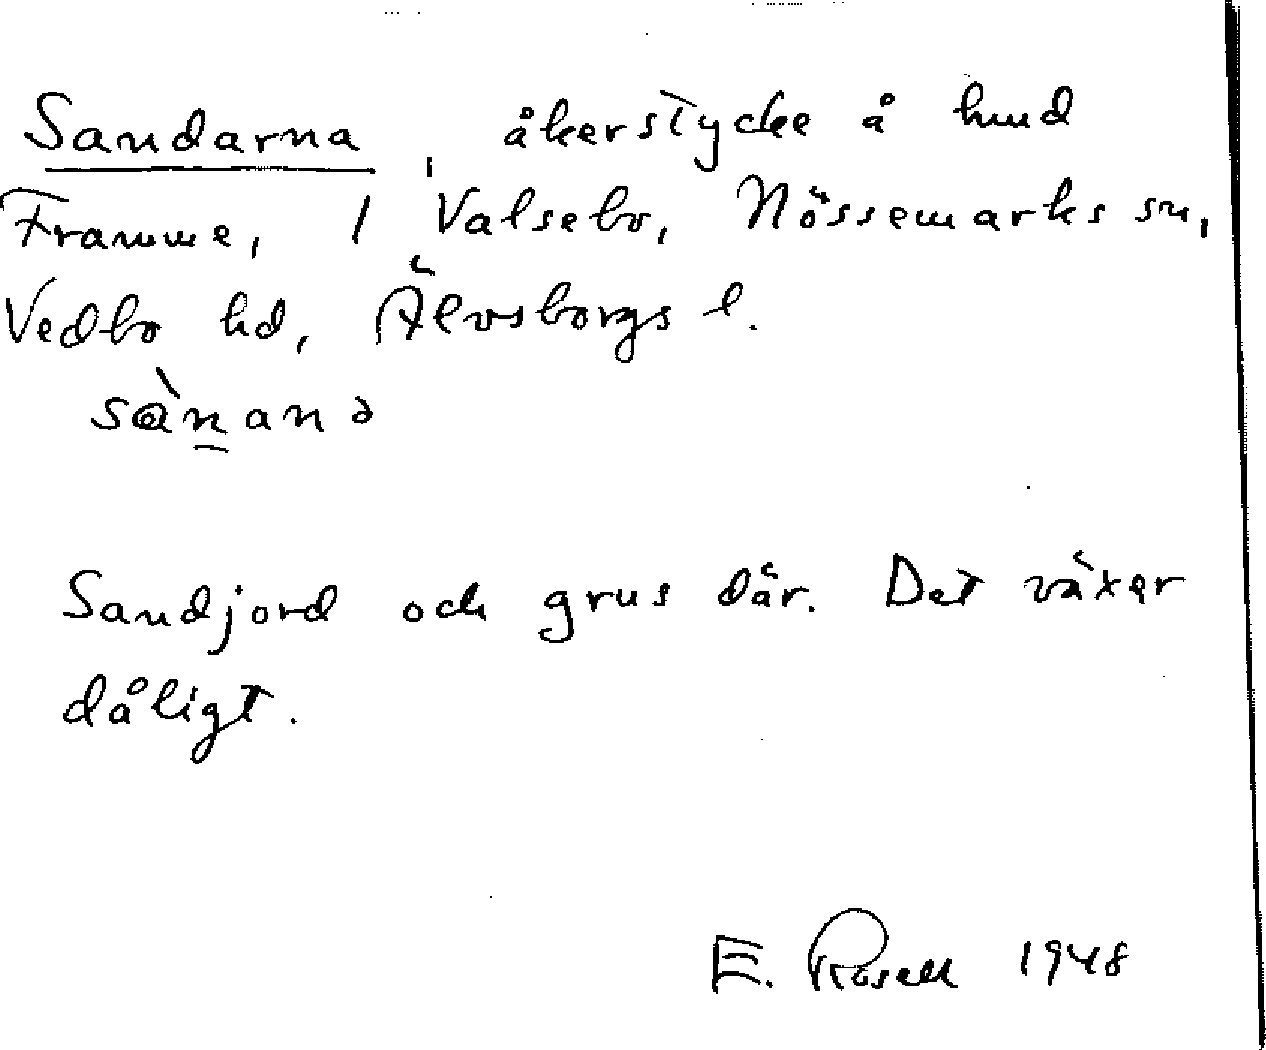 Sandarna, åkerstycke å hmd
Framme, 1 Valsebo, Nössemarks sn,
Vedbo hd, Älvsborgs l.
Sandjord och grus där. Det växer
dåligt.
E. Rosell 1948